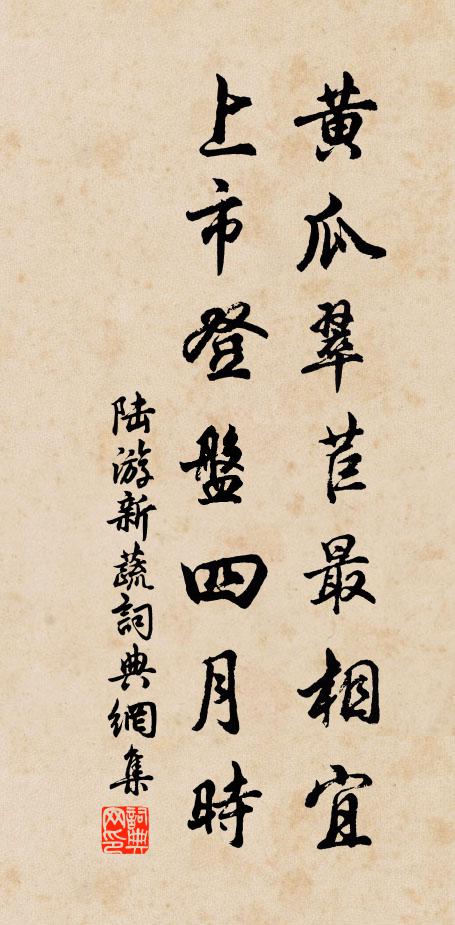 黄瓜翠苣最相宜
上市登盤四月時
陆游新蔬詞典網集
詞典网印